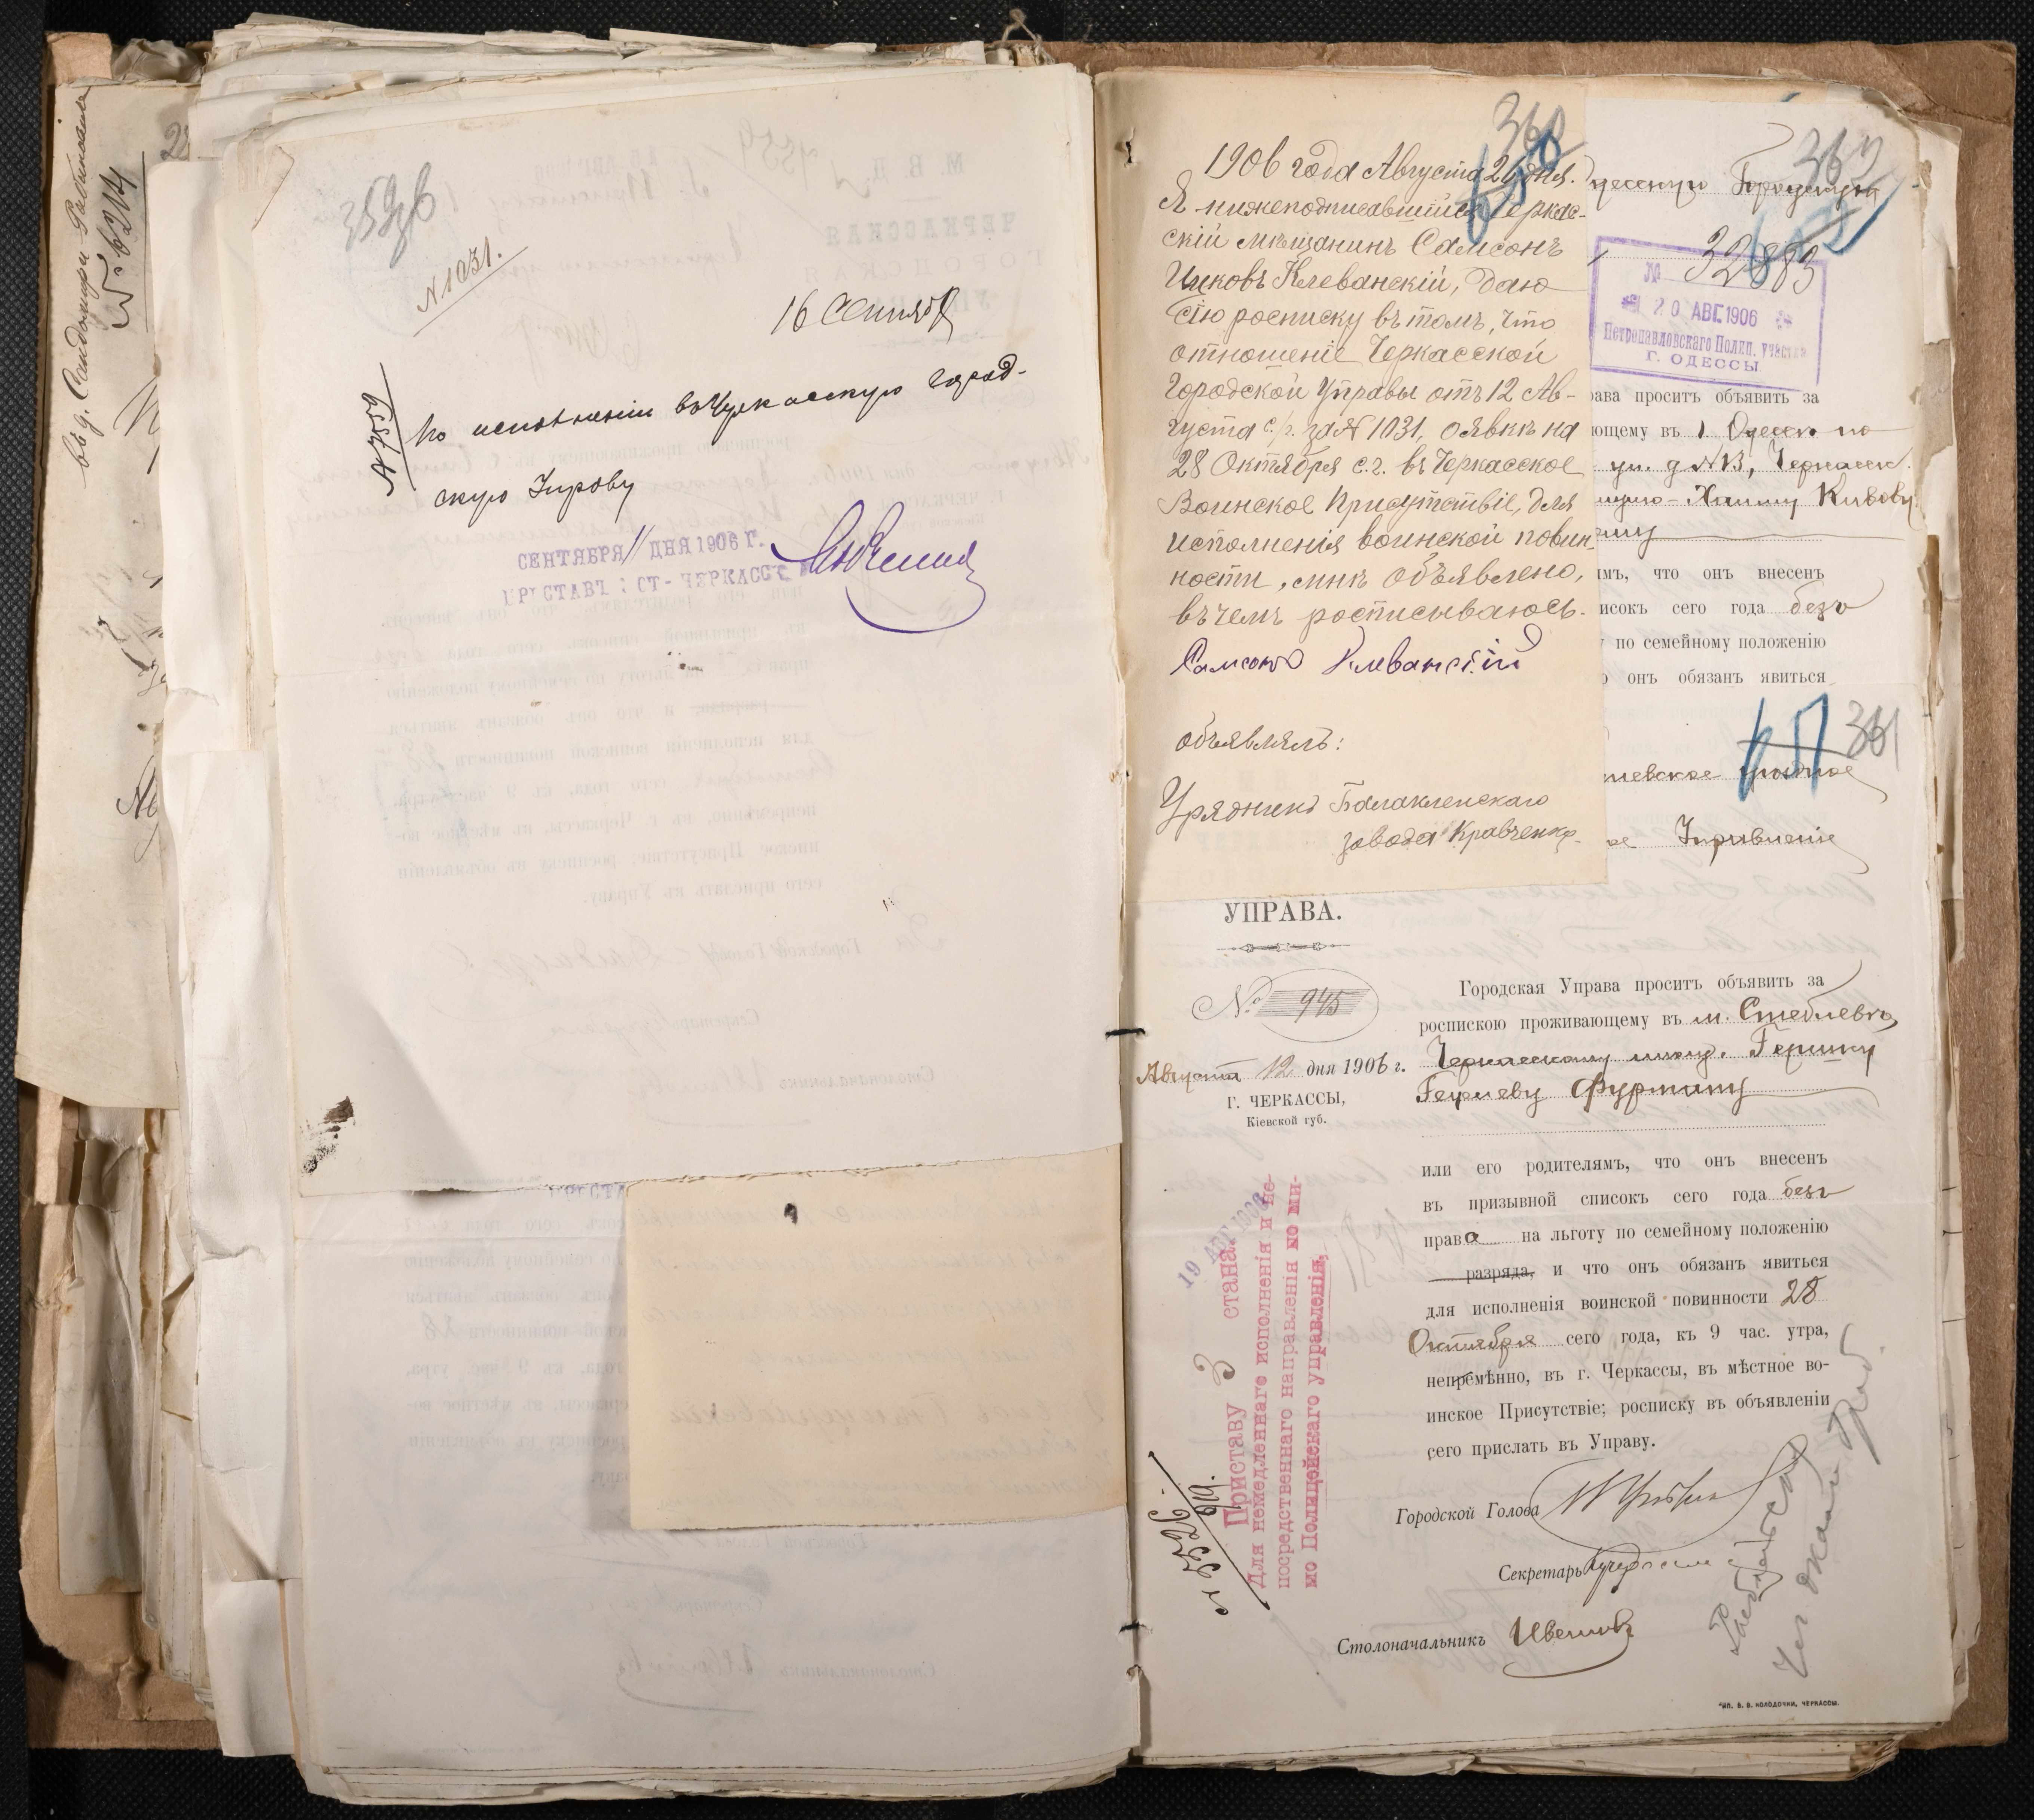 въ д. Сандомири-Растоталя
№ 6214
359
№ 1031.
16 Сентяб
№ 7559
По исполненіи въ Черкасскую Город-
скую Управу
СЕНТЯБРЯ 11 ДНЯ 1906 Г.
ПРИСТАВЪ СТ- ЧЕРКАССЪ
360
1906 года Августа 26 дня.
Я нижеподписавшийся Черкас-
скій мѣщанинъ Самсонъ
Ицковъ Клеванскій, даю
сію росписку въ томъ, что
отношеніе Черкасской
Городской Управы отъ 12 Ав-
густа с/г. за № 1031, о явкѣ на
28 Октября с.г. въ Черкасское
Воинское Присутствіе, для
исполненія воинской повин-
ности, мнѣ объявлено,
въ чемъ росписываюсь.
Самсонъ Клеванскій
объявлялъ:
Урядникъ Балаклейскаго
завода Кравченко.
362
№ 32883
20 АВГ.1906
Петропавловскаго Полиц. участка
Г. ОДЕССЫ.
рава проситъ объявить за
ющему въ г. Одессѣ по
ул. д № 13, Черкасск.
Хаиму Кивову
имъ, что онъ внесенъ
исокъ сего года безъ
по семейному положенію
о онъ обязанъ явиться
361
Управленіе
УПРАВА.
№ 945
Августа 12 дня 1906 г.
Г. ЧЕРКАССЫ,
Кіевской губ.
Городская Управа проситъ объявить за
роспискою проживающему въ м. Стеблевѣ,
Черкасскому мѣщ. Гершку
Гершеву Фурману
или его родителямъ, что онъ внесенъ
въ призывной списокъ сего года безъ
права на льготу по семейному положенію
разряда, и что онъ обязанъ явиться
для исполненія воинской повинности 28
Октября сего года, къ 9 час. утра,
непремѣнно, въ г. Черкассы, въ мѣстное во-
инское Присутствіе; росписку въ объявленіи
сего прислать въ Управу.
Городской Голова
Секретарь
Столоначальникъ Ивешовъ
19 АВГ 1906
Приставу 3 стана.
Для немедленнаго исполненія и не-
посредственнаго направленія по ми-
мо Полицейскаго управленія.
Тип. В. В. КОЛОДОЧКИ, ЧЕРКАССЫ.